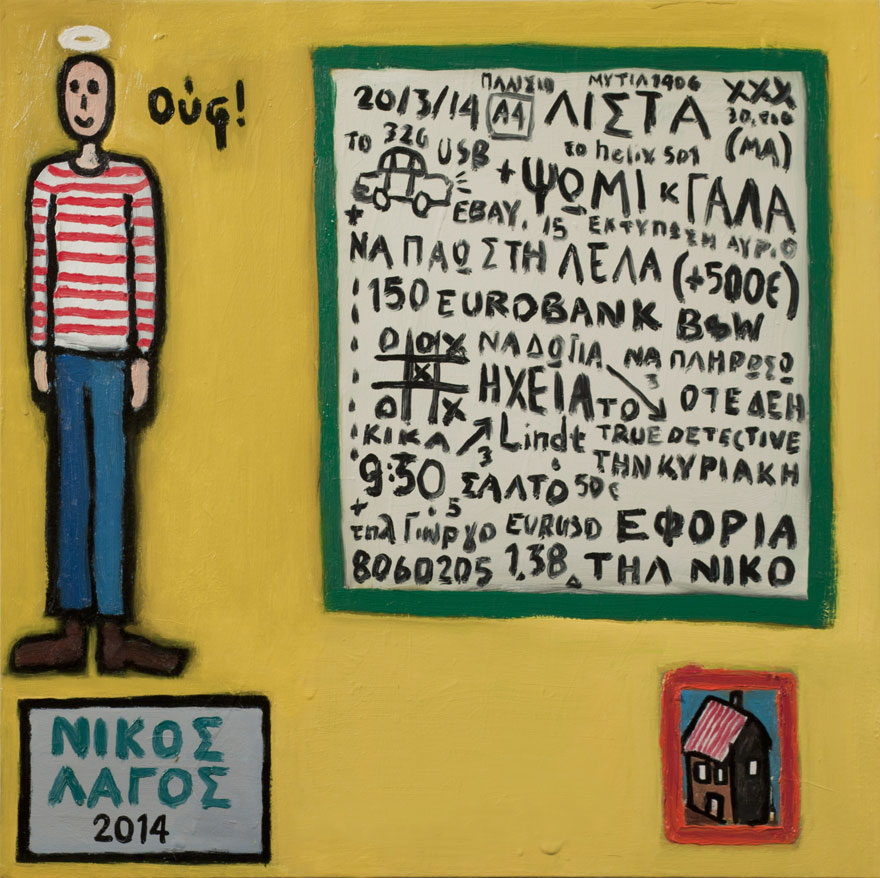 Ούφ!
ΠΛΑΙΣΙΟ ΜΥΤΙΛ 1906 XXX
2013/14 A4 ΛΙΣΤΑ
(ΜΑ)
ΤΟ 320 USB το helix 501
+ ΨΩΜΙ κ ΓΑΛΑ
+ EBAY, 15 ΕΚΤΥΠΩΣΗ ΑΥΡΙΟ
ΝΑ ΠΑΩ ΣΤΗ ΛΕΛΑ (+500€)
150 EUROBANK B&W
O O X ΝΑ ΔΩ ΓΙΑ ΝΑ ΠΛΗΡΩΣΩ
X ΗΧΕΙΑ ΤΟ 3 ΟΤΕ ΔΕΗ
O X
ΚΙΚΑ 3 Lindt TRUE DETECTIVE
9:30 ΣΑΛΤΟ 50€ ΤΗΝ ΚΥΡΙΑΚΗ
+ τηλ Γιώργο 5 EURUSD ΕΦΟΡΙΑ
8060205 1,38 ΤΗΛ ΝΙΚΟ
ΝΙΚΟΣ
ΛΑΓΟΣ
2014